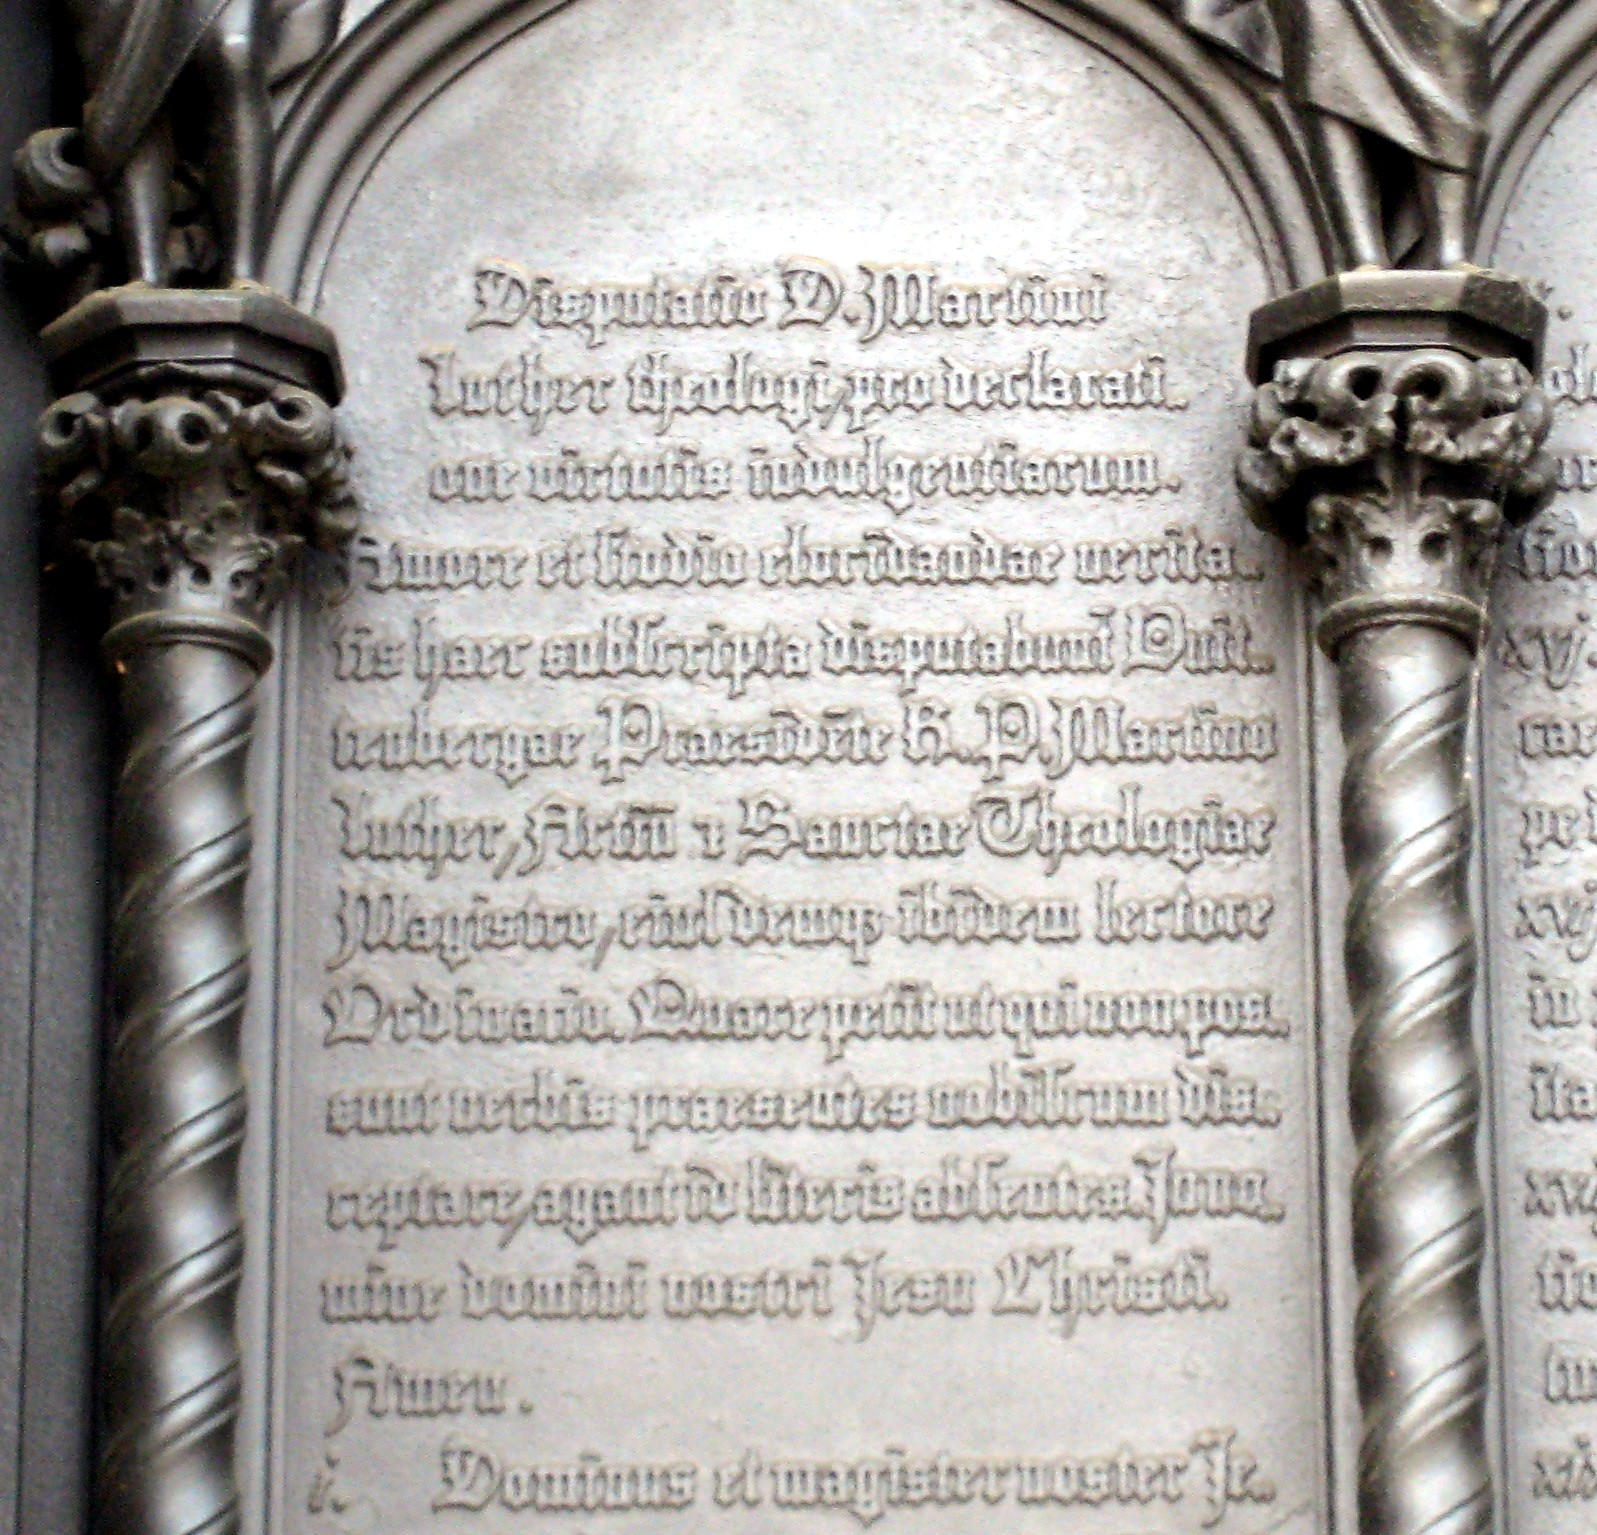 Disputatio D. Martini
Luther theologi, pro declarati.
one virtutis indulgentiarum.
Amore et studio elucidandae verita.
tis haec subscripta disputabunt̄ Vuit.
tenbergae Praesidēte R. P. Martino
Luther, Artiū ꝛ Sanctae Theologiae
Magistro, eiusdemqꝫ ibidem lectore
Ordinario. Quare petit ut qui non pos.
sunt verbis praesentes nobiscum dis.
ceptare, agant id literis absentes. In no.
mine domini nostri Jesu Christi.
Amen.
i. Dominus et magister noster Je.
xvj.
xvij